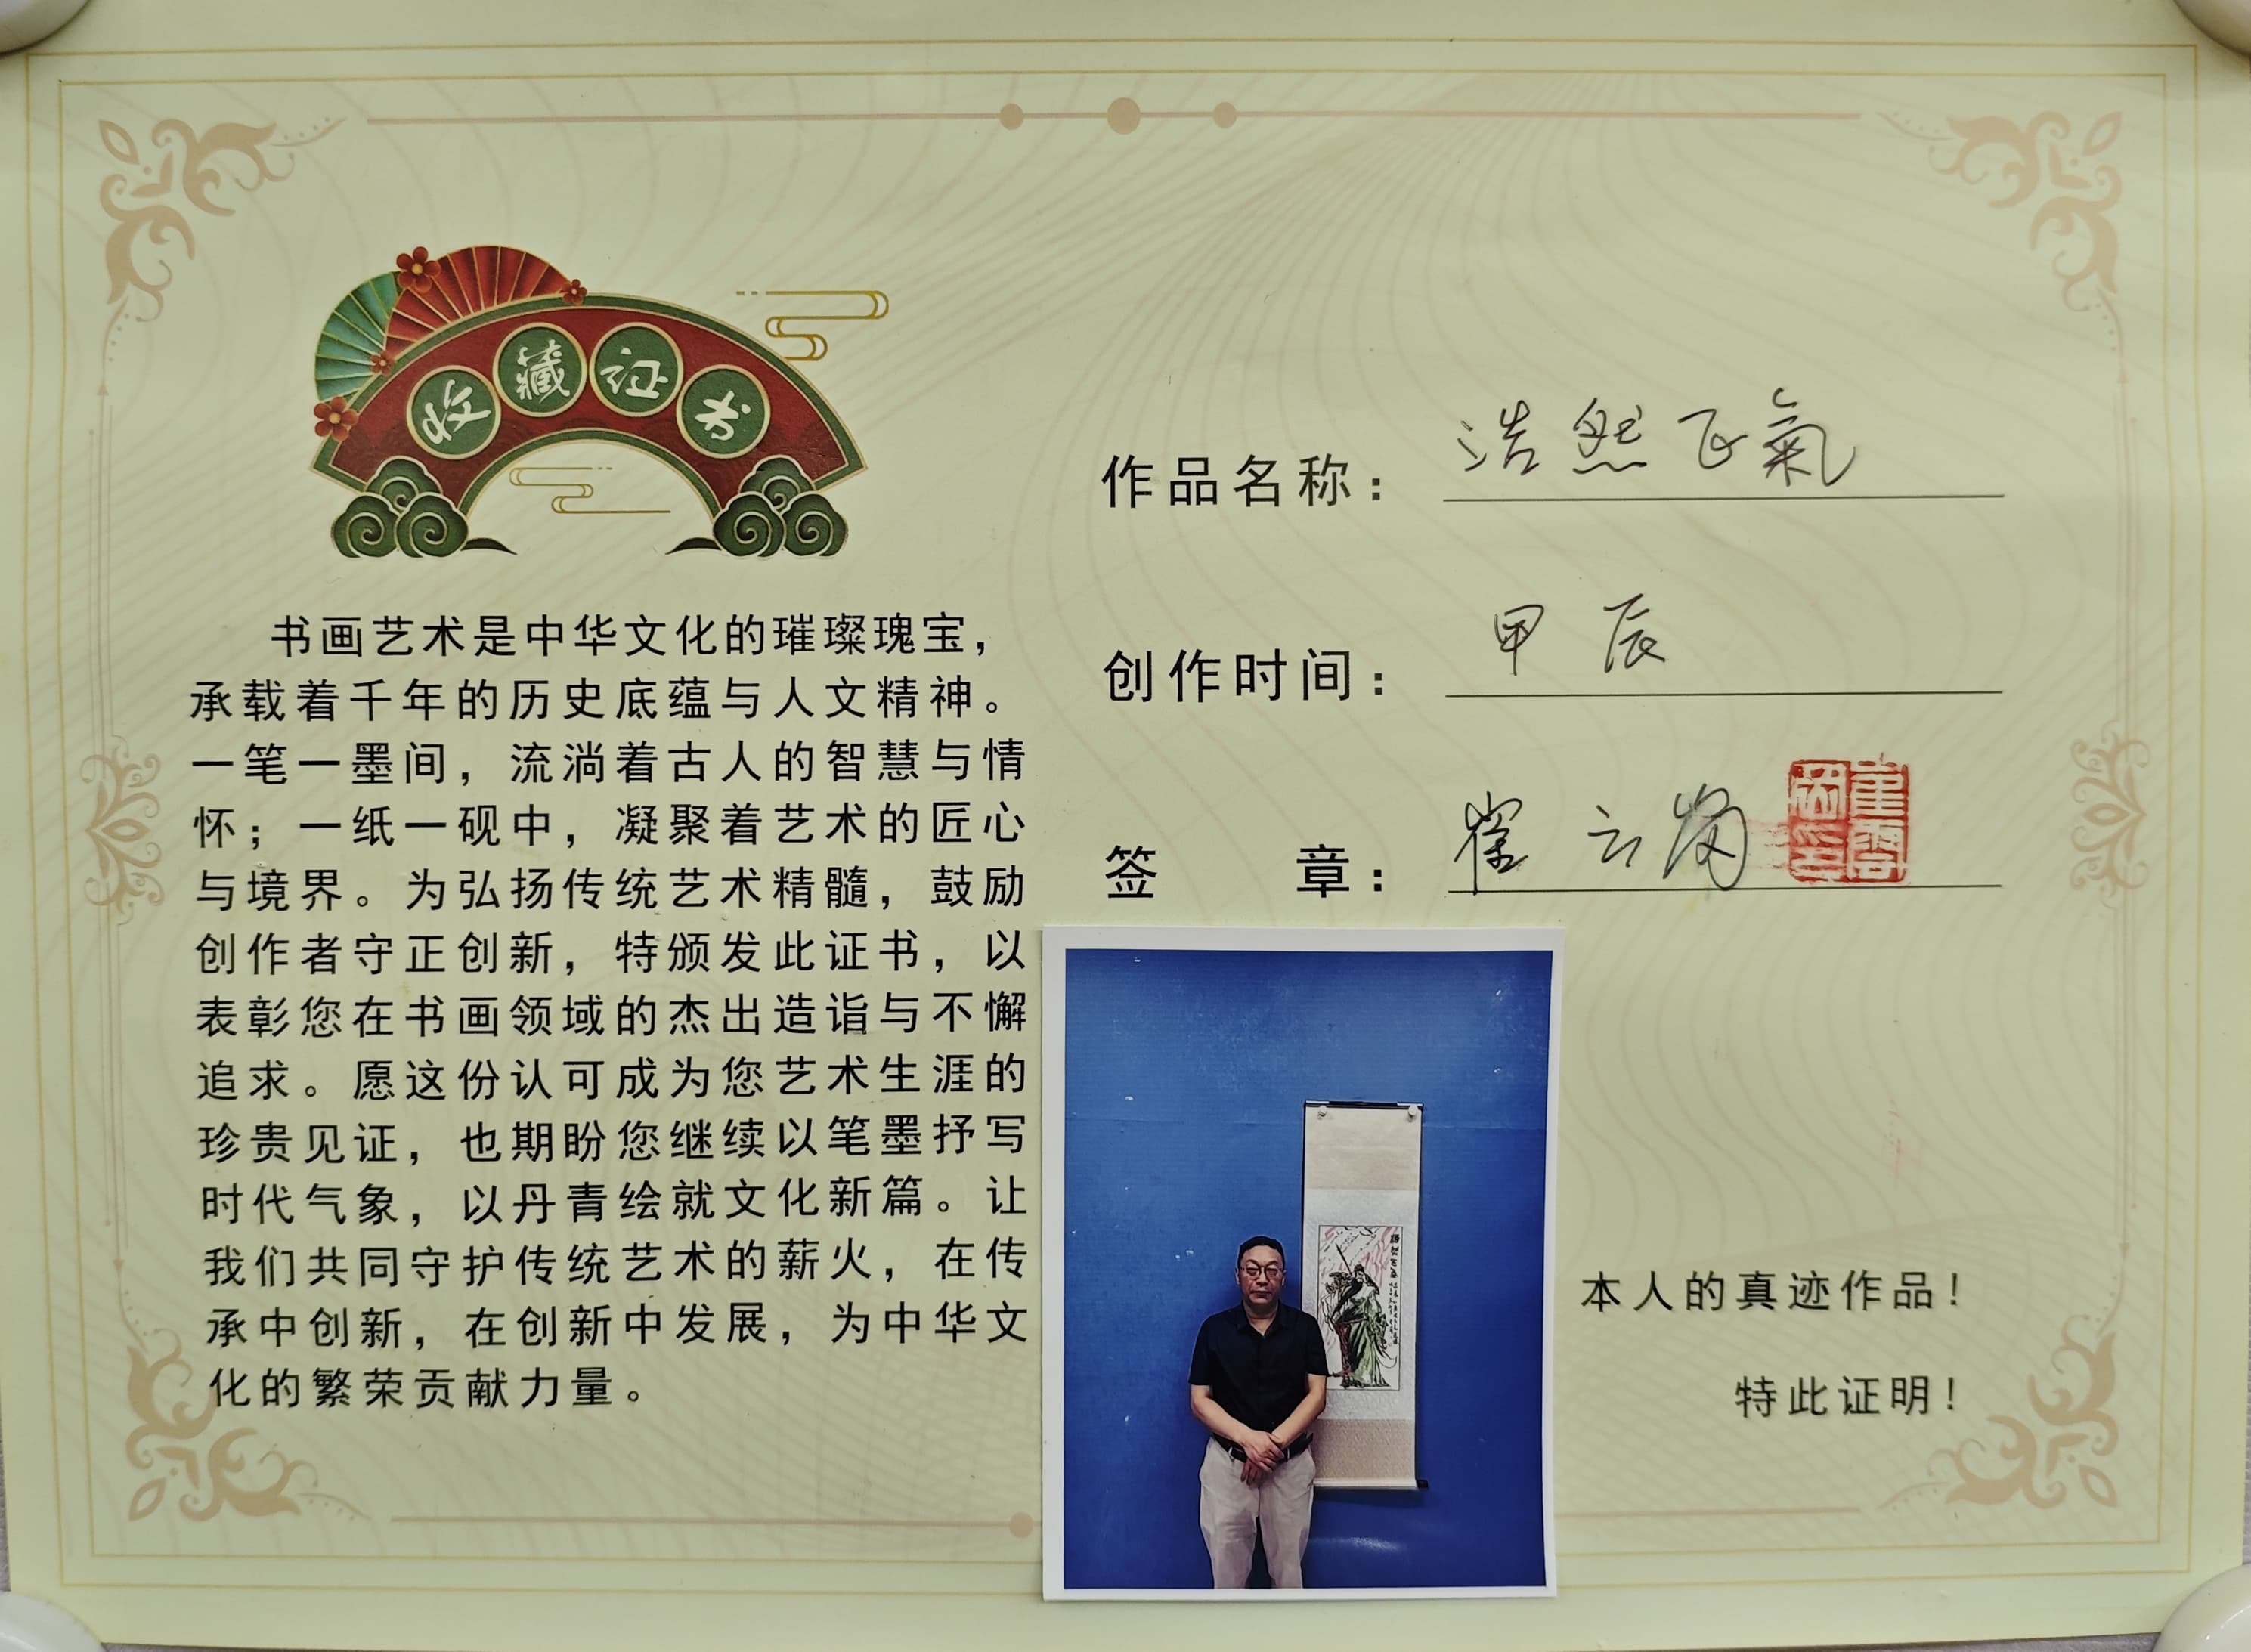 收藏证书
书画艺术是中华文化的璀璨瑰宝，
承载着千年的历史底蕴与人文精神。
一笔一墨间，流淌着古人的智慧与情
怀；一纸一砚中，凝聚着艺术的匠心
与境界。为弘扬传统艺术精髓，鼓励
创作者守正创新，特颁发此证书，以
表彰您在书画领域的杰出造诣与不懈
追求。愿这份认可成为您艺术生涯的
珍贵见证，也期盼您继续以笔墨抒写
时代气象，以丹青绘就文化新篇。让
我们共同守护传统艺术的薪火，在传
承中创新，在创新中发展，为中华文
化的繁荣贡献力量。
作品名称：浩然正氣
创作时间：甲辰
签章：崔云
本人的真迹作品！
特此证明！